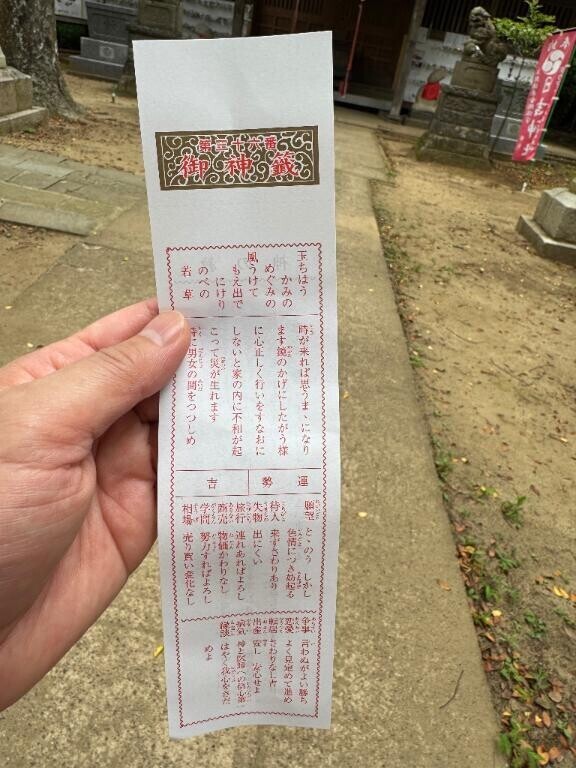 第三十六番
御神籤
玉ちはう
かみの
めぐみの
風うけて
もえ出で
にけり
のべの
若草
時が来れば思うまゝになり
ます鏡のかげにしたがう様
に心正しく行いをすなおに
しないと家の内に不和が起
こって災が生れます
特に男女の間をつつしめ
運勢 吉
願望 とゝのう しかし
色情につき妨起る
待人 来ずさわりあり
失物 出にくい
旅行 連れあればよろし
商売 物価かわりなし
学問 努力すればよろし
相場 売り買い変化なし
争事 言わぬがよい勝ち
恋愛 よく見定めて進め
転居 さわりなし吉
出産 安し 安心せよ
病気 神と医師への信心第一
縁談 はやく我心をさだ
めよ
日吉神社